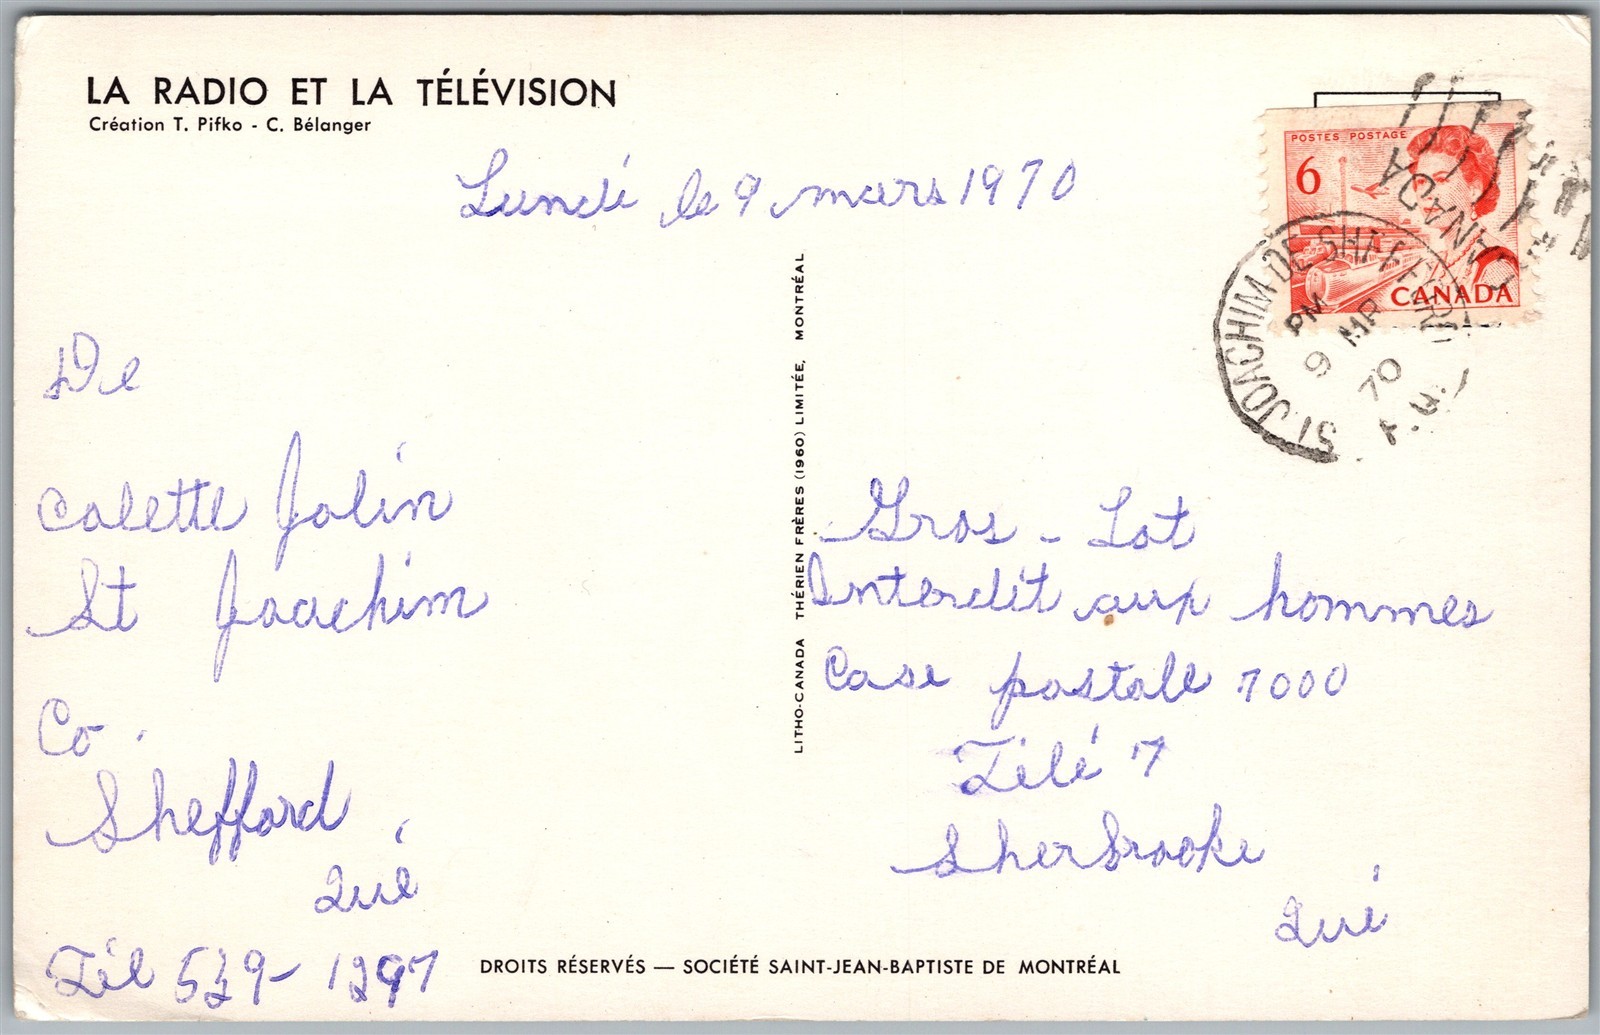 LA RADIO ET LA TÉLÉVISION
Création T. Pifko - C. Bélanger
Lundi le 9 mars 1970
POSTES POSTAGE
6
CANADA
ST JOACHIM DE SHEFFORD
P.Q.
PM
9 MR
70
CANADA
De
Colette Jolin
St Joachim
Co.
Shefford
Qué
Tél 539-1297
LITHO-CANADA THÉRIEN FRÈRES (1960) LIMITÉE, MONTRÉAL
Gros - Lot
Interdit aux hommes
Case postale 7000
Télé 7
Sherbrooke
Qué
DROITS RÉSERVÉS — SOCIÉTÉ SAINT-JEAN-BAPTISTE DE MONTRÉAL